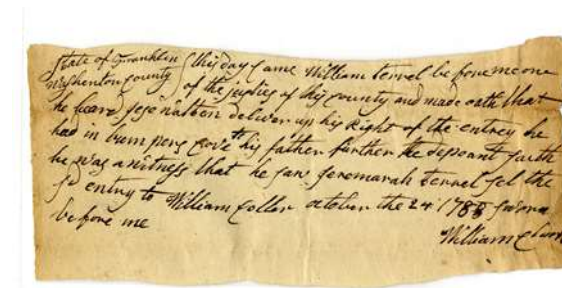 State of Franklin { this day Came William terrel before me one
Washenton County { of the justies of this County and made oath that
he heard jese nalben deliver up his Right of the entrey he
had in bumpers Cove to his father further the deponant saith
he was a witness that he saw Jeromarah terrel sel the
sd entry to William Coller october the 24 1788
before me
William